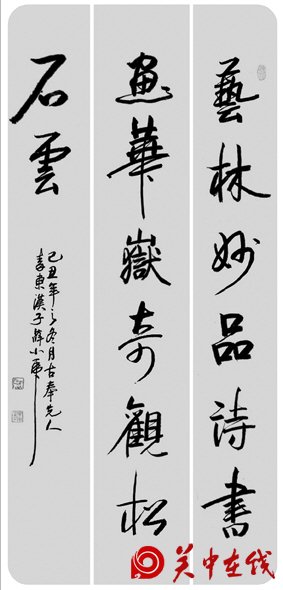 藝林妙品詩書
畫華嶽奇觀松
石雲
己丑年之冬月古奉先人
東漢子 小
关中在线